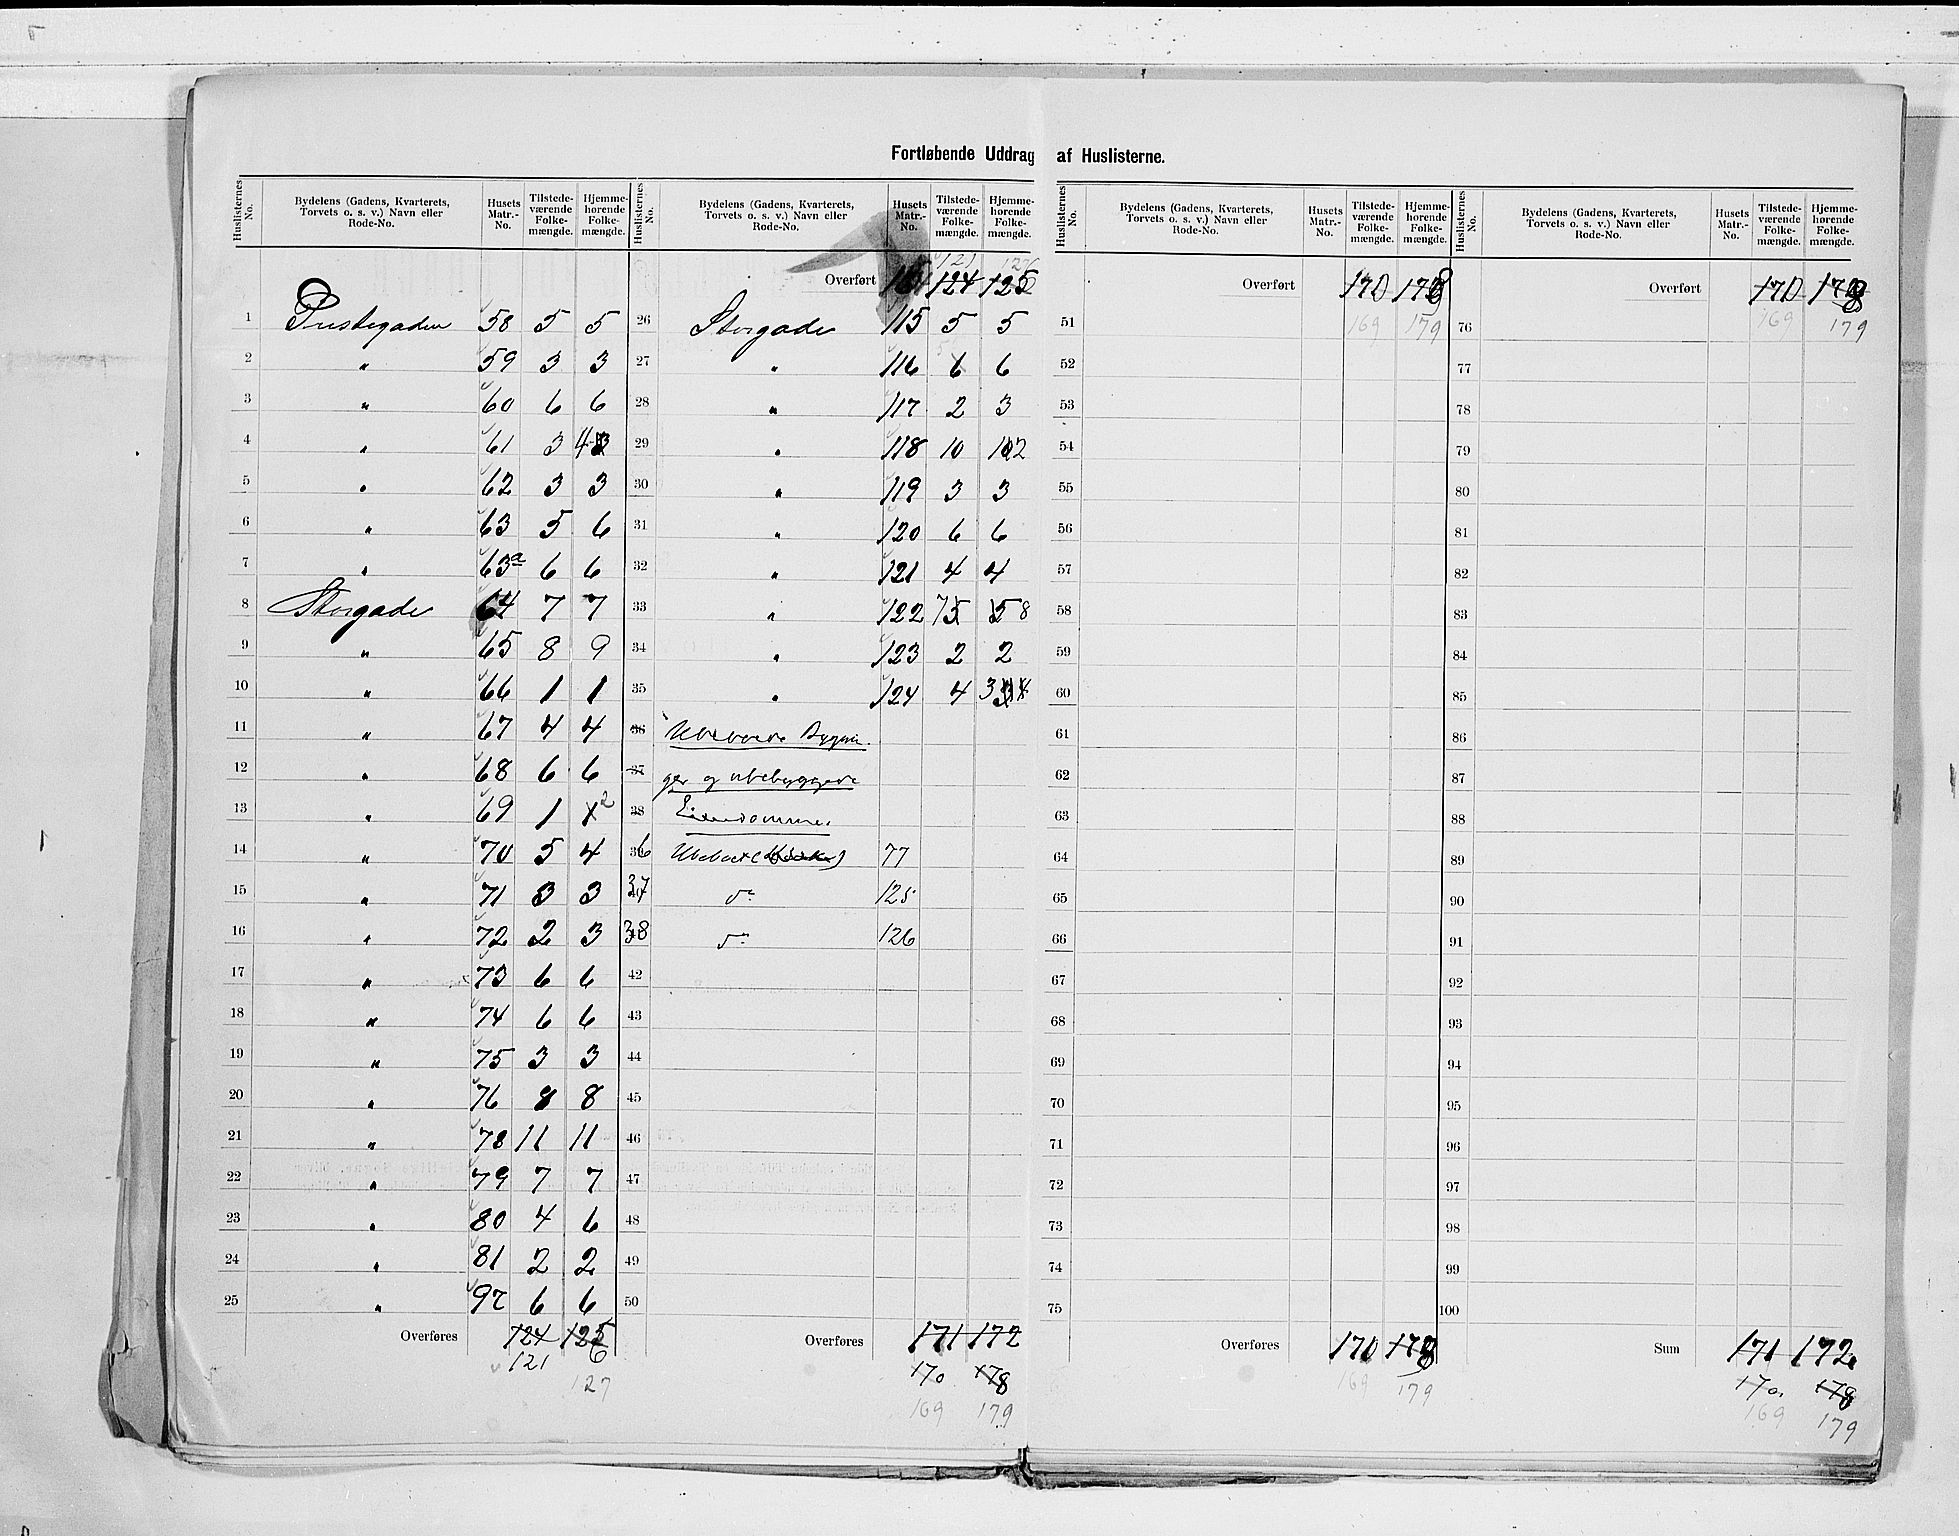 Fortløbende Uddrag af Huslisterne.
Huslisternes No. | Bydelens (Gadens, Kvarterets, Torvets o. s. v.) Navn eller Rode-No. | Husets Matr.-No. | Tilstedeværende Folkemængde. | Hjemmehørende Folkemængde.
1 Præstegaden 58 5 5
2 " 59 3 3
3 " 60 6 6
4 " 61 3 4 3
5 " 62 3 3
6 " 63 5 6
7 " 63a 6 6
8 Storgade 64 7 7
9 " 65 8 9
10 " 66 1 1
11 " 67 4 4
12 " 68 6 6
13 " 69 1 1 2
14 " 70 5 4
15 " 71 3 3
16 " 72 2 3
17 " 73 6 6
18 " 74 6 6
19 " 75 3 3
20 " 76 8 8
21 " 78 11 11
22 " 79 7 7
23 " 80 4 6
24 " 81 2 2
25 " 97 6 6
Overføres 124 125
121 6
127
Huslisternes No. | Bydelens (Gadens, Kvarterets, Torvets o. s. v.) Navn eller Rode-No. | Husets Matr.-No. | Tilstedeværende Folkemængde. | Hjemmehørende Folkemængde.
121 126
Overført 124 125
26 Storgade 115 5 5
27 " 116 6 6
28 " 117 2 3
29 " 118 10 10 12
30 " 119 3 3
31 " 120 6 6
32 " 121 4 4
33 " 122 7 5 5 8
34 " 123 2 2
35 " 124 4 3
36 Ubeboede Bygnin-
37 ger og ubebyggede
38 Ejendomme.
36 Ubeboet 77
37 do 125
38 do 126
42
43
44
45
46
47
48
49
50
Overføres 171 172
170 178
169 179
Huslisternes No. | Bydelens (Gadens, Kvarterets, Torvets o. s. v.) Navn eller Rode-No. | Husets Matr.-No. | Tilstedeværende Folkemængde. | Hjemmehørende Folkemængde.
Overført 170 178
51 169 179
52
53
54
55
56
57
58
59
60
61
62
63
64
65
66
67
68
69
70
71
72
73
74
75
Overføres 170 178
169 179
Huslisternes No. | Bydelens (Gadens, Kvarterets, Torvets o. s. v.) Navn eller Rode-No. | Husets Matr.-No. | Tilstedeværende Folkemængde. | Hjemmehørende Folkemængde.
Overført 170 178
76 169 179
77
78
79
80
81
82
83
84
85
86
87
88
89
90
91
92
93
94
95
96
97
98
99
100
Sum 171 172
170 178
169 179